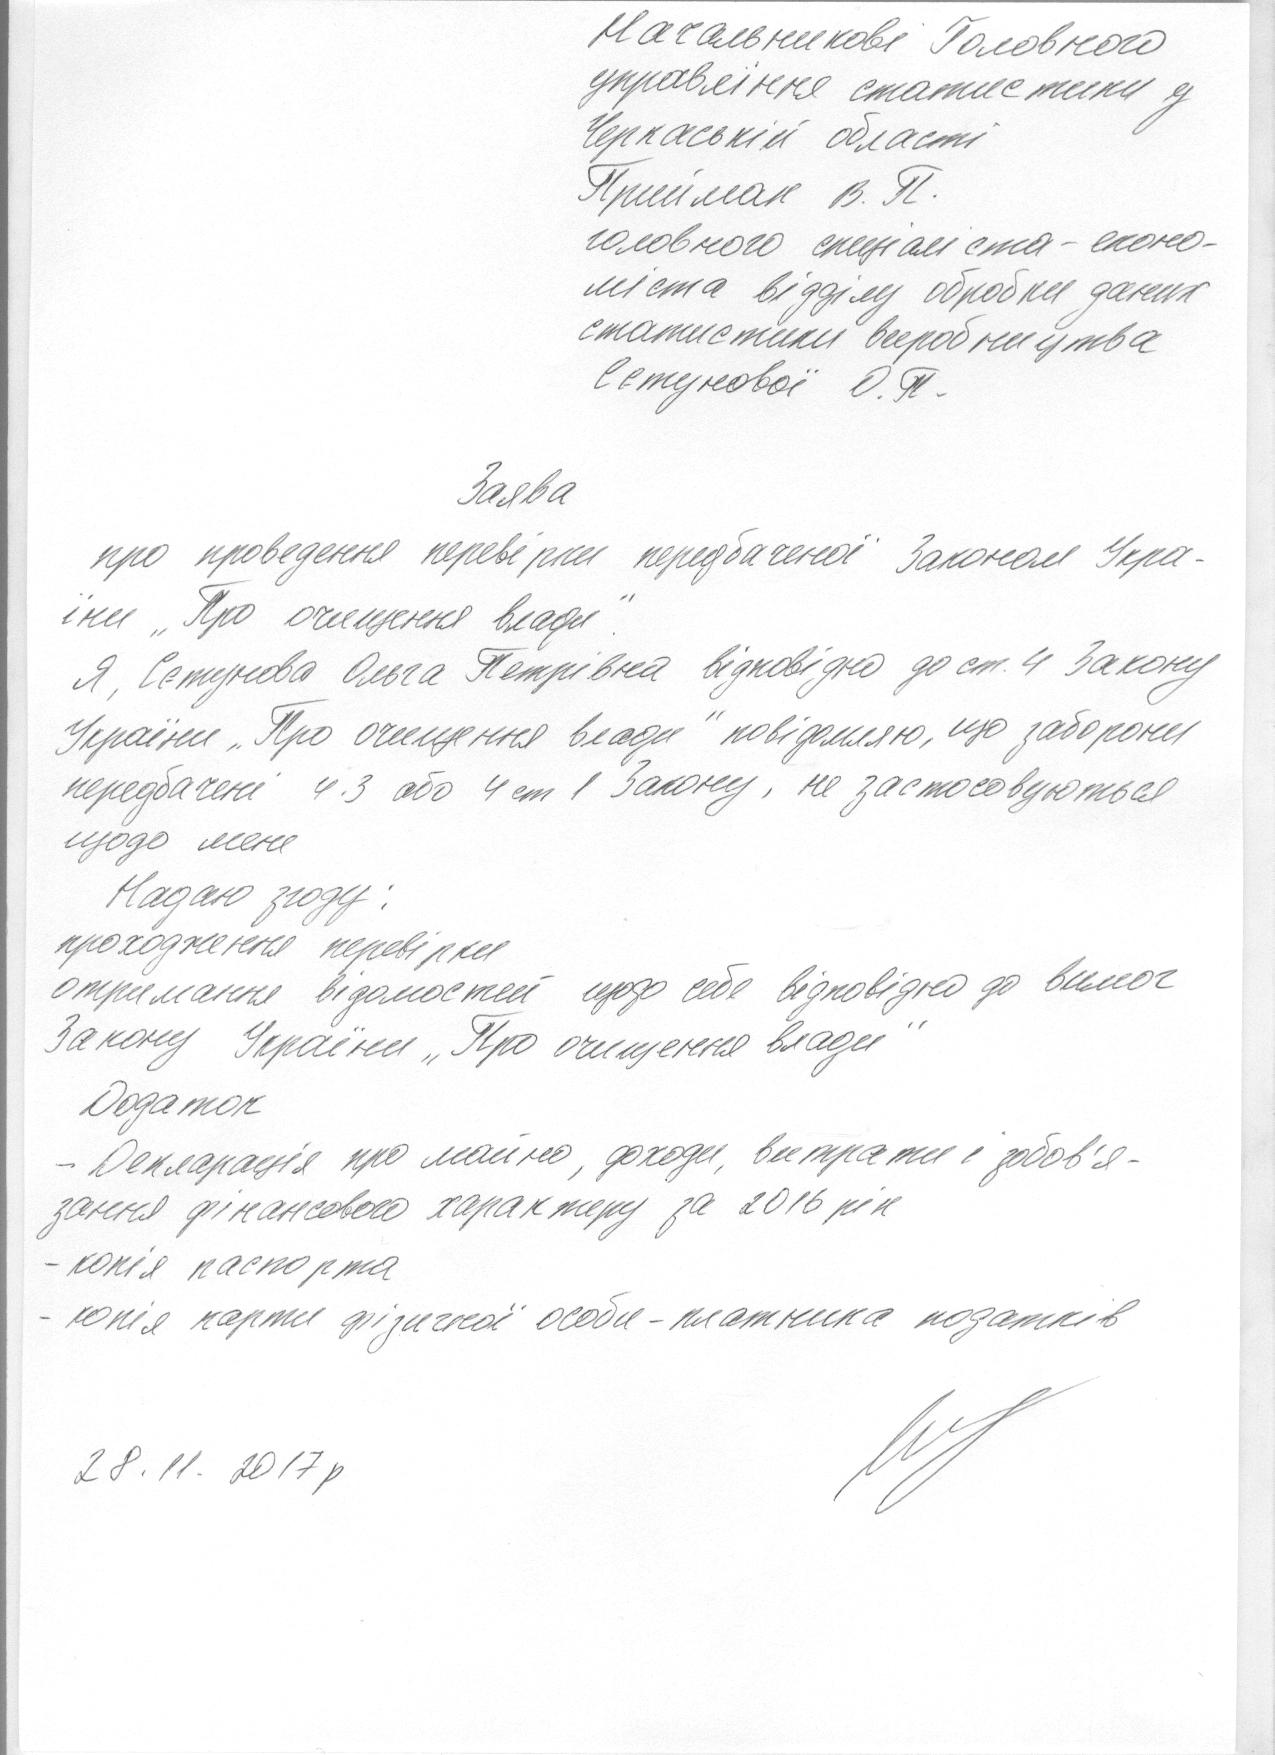 Начальникові Головного
управління статистики у
Черкаській області
Приймак В.П.
головного спеціаліста-еконо-
міста відділу обробки даних
статистики виробництва
Сєтунової О.П.
Заява
про проведення перевірки передбаченої Законом Укра-
їни „Про очищення влади".
Я, Сєтунова Ольга Петрівна відповідно до ст. 4 Закону
України „Про очищення влади" повідомляю, що заборони
передбачені ч.3 або 4 ст 1 Закону, не застосовуються
щодо мене
Надаю згоду:
проходження перевірки
отримання відомостей щодо себе відповідно до вимог
Закону України „Про очищення влади"
Додаток
- Декларація про майно, доходи, витрати і зобов'я-
зання фінансового характеру за 2016 рік
- копія паспорта
- копія карти фізичної особи-платника податків
28.11.2017р